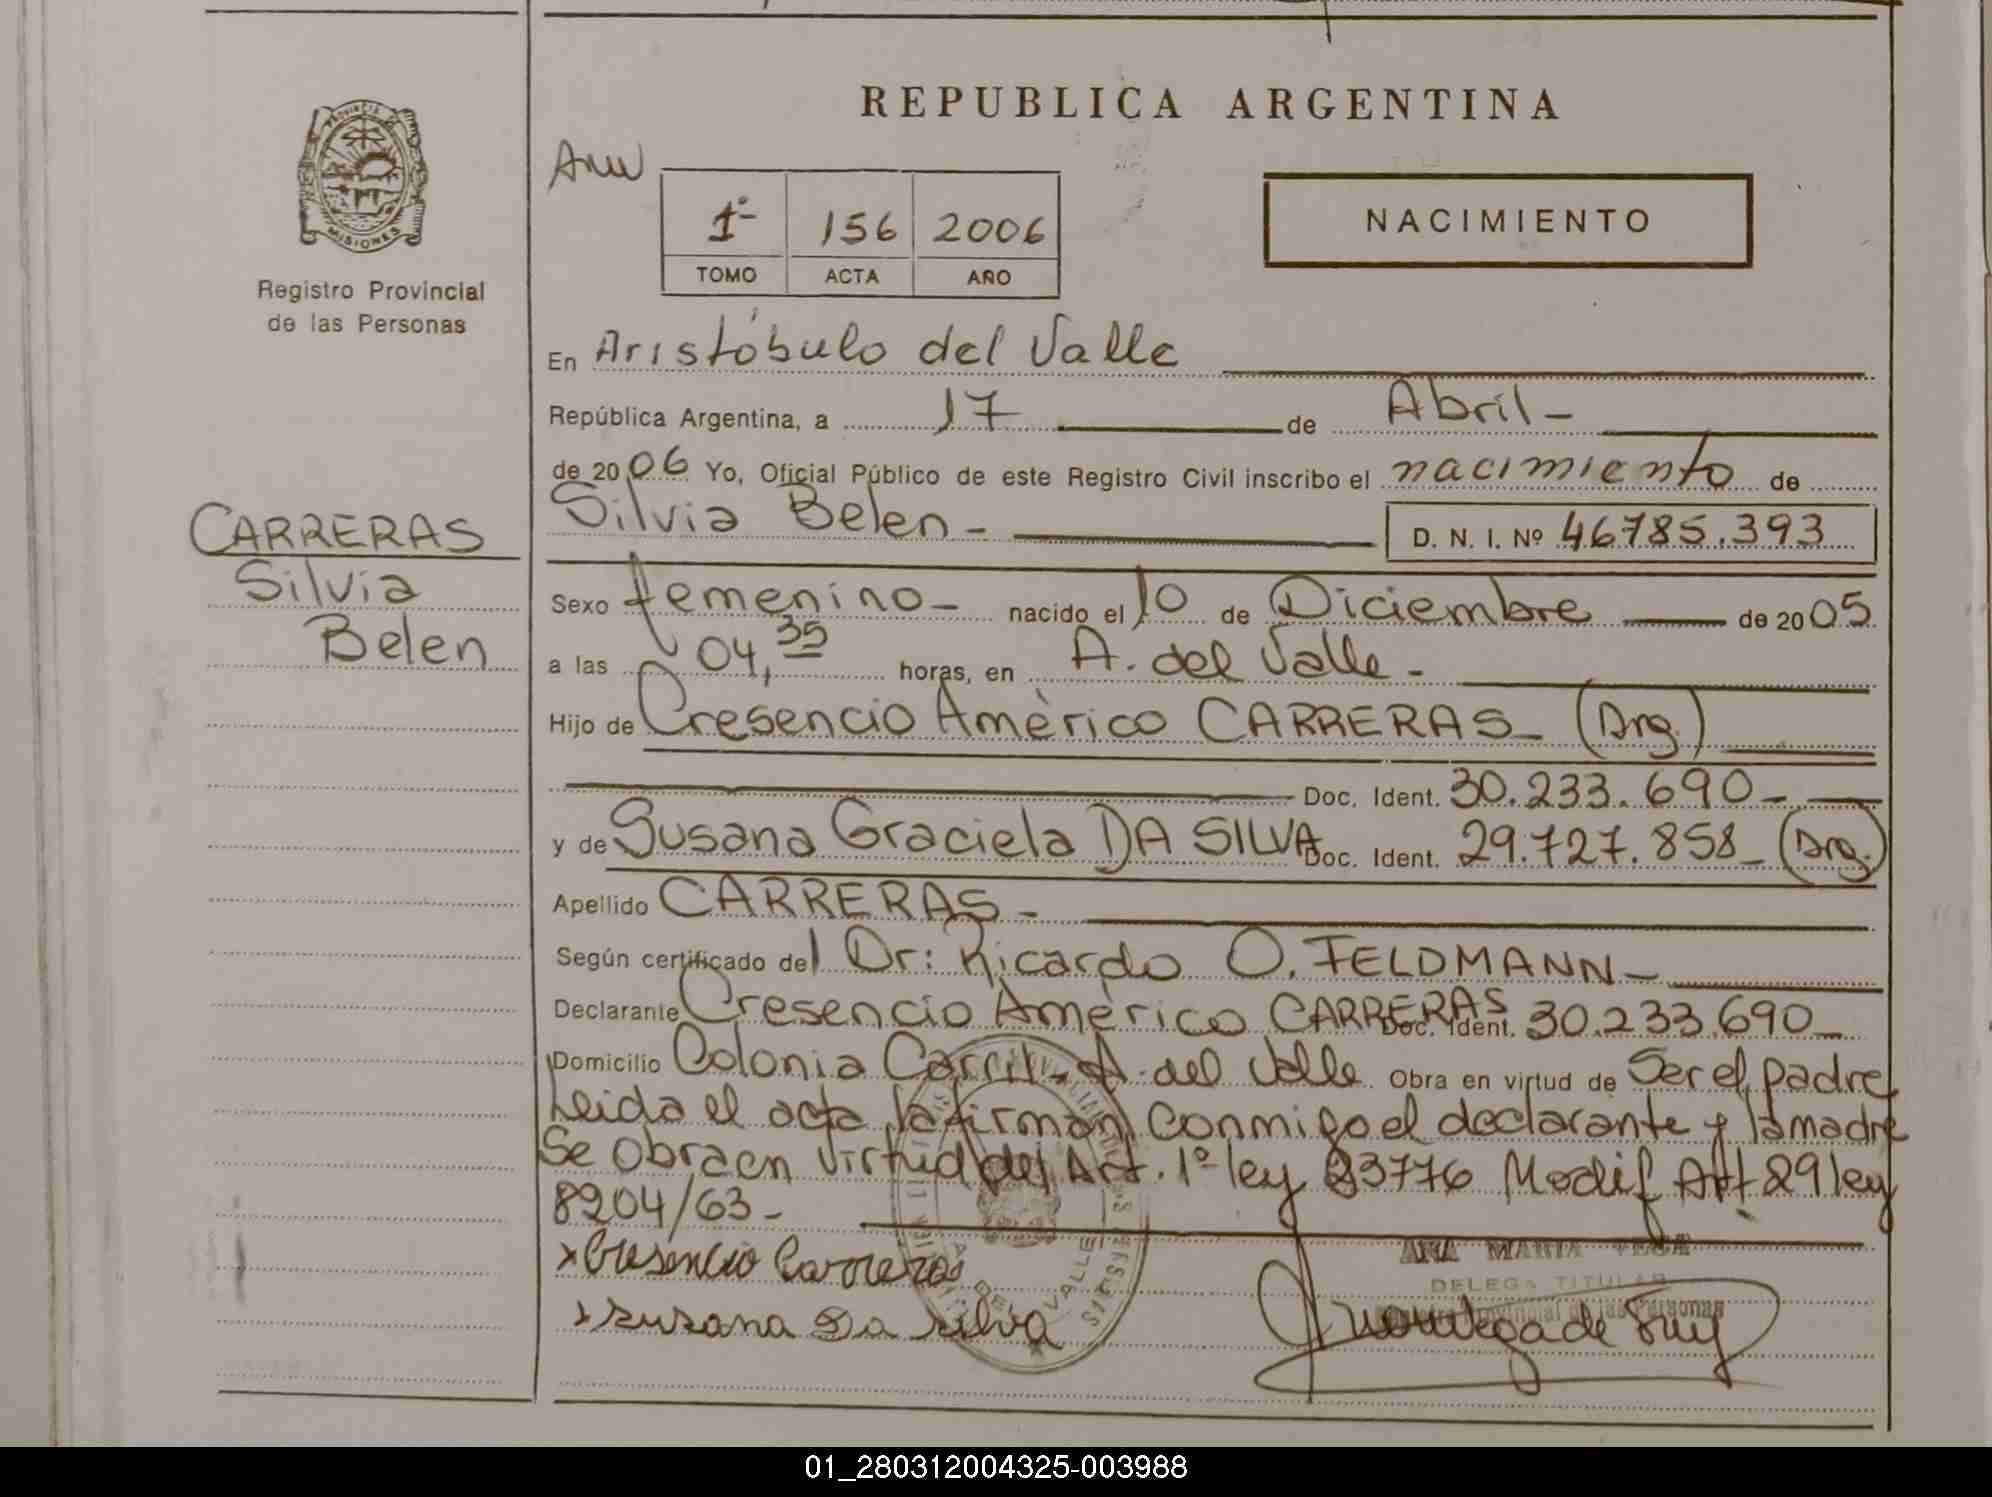 REPUBLICA ARGENTINA
PROVINCIA DE
MISIONES
Registro Provincial
de las Personas
1º 156 2006
TOMO ACTA AÑO
NACIMIENTO
En Aristóbulo del Valle
República Argentina, a 17 de Abril -
de 2006 Yo, Oficial Público de este Registro Civil inscribo el nacimiento de
Silvia Belen - D. N. I. Nº 46785.393
CARRERAS
Silvia
Belen
Sexo femenino - nacido el 10 de Diciembre de 2005
a las 04,35 horas, en A. del Valle -
Hijo de Cresencio Américo CARRERAS - (Arg.)
Doc. Ident. 30.233.690 -
y de Susana Graciela DA SILVA Doc. Ident. 29.727.858 - (Arg.)
Apellido CARRERAS -
Según certificado del Dr: Ricardo O. FELDMANN -
Declarante Cresencio Américo CARRERAS Doc. Ident. 30.233.690 -
Domicilio Colonia Carril - A. del Valle Obra en virtud de Ser el padre
Leida el acta, la firman conmigo el declarante y la madre
Se obra en virtud del Art. 1º ley 23776 Modif Art 29 ley
8204/63 -
x Cresencio Carreras
x Susana Da silva
ANA MARIA
DELEGA TITULAR
Registro Provincial de las Personas
01_280312004325-003988